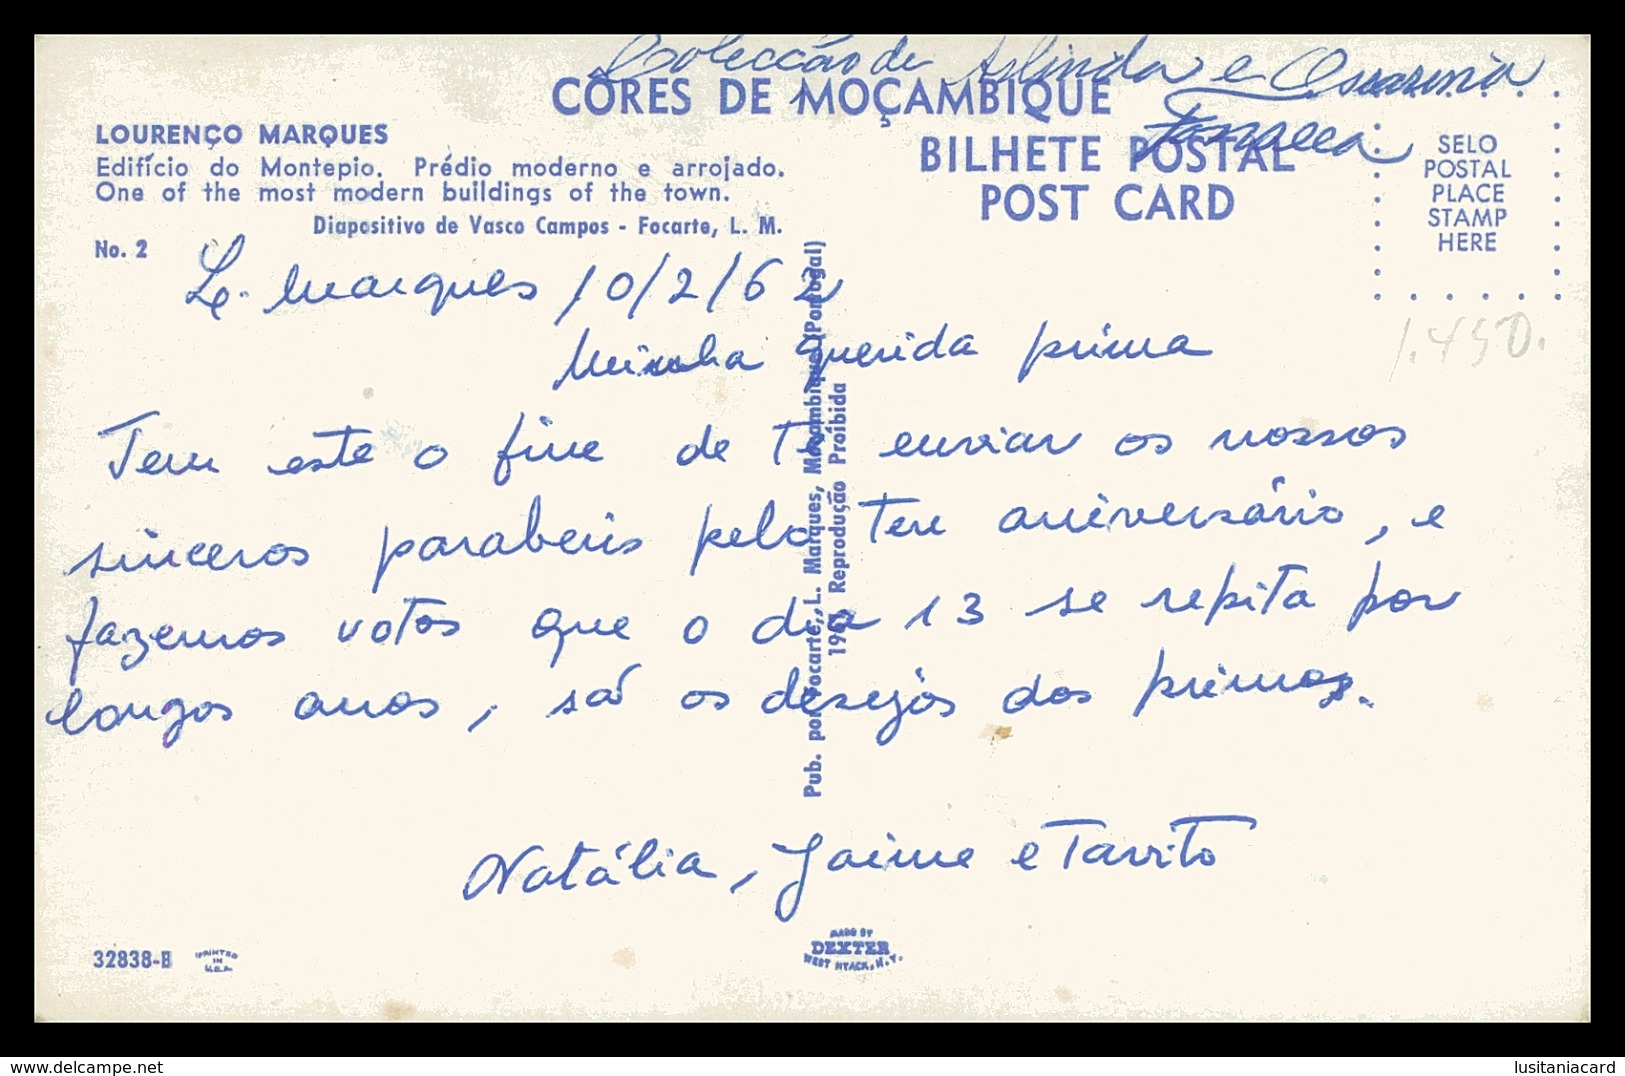 Colecção de Arlinda e
Fonseca
CORES DE MOÇAMBIQUE
BILHETE POSTAL
POST CARD
SELO
POSTAL
PLACE
STAMP
HERE
LOURENÇO MARQUES
Edifício do Montepio. Prédio moderno e arrojado.
One of the most modern buildings of the town.
Diapositivo de Vasco Campos - Focarte, L. M.
No. 2
L. Marques 10/2/62
1.450.
Minha querida prima
Tem este o fim de te enviar os nossos
sinceros parabens pelo teu aniversário, e
fazemos votos que o dia 13 se repita por
longos anos, são os desejos dos primos.
Natália, Jaime e Tavito
Pub. por Focarte, L. Marques, Moçambique (Portugal)
Reprodução Proíbida
32838-B
PRINTED
IN
U.S.A.
MADE BY
DEXTER
WEST NYACK, N.Y.
https://www.delcampe.net
lusitaniacard